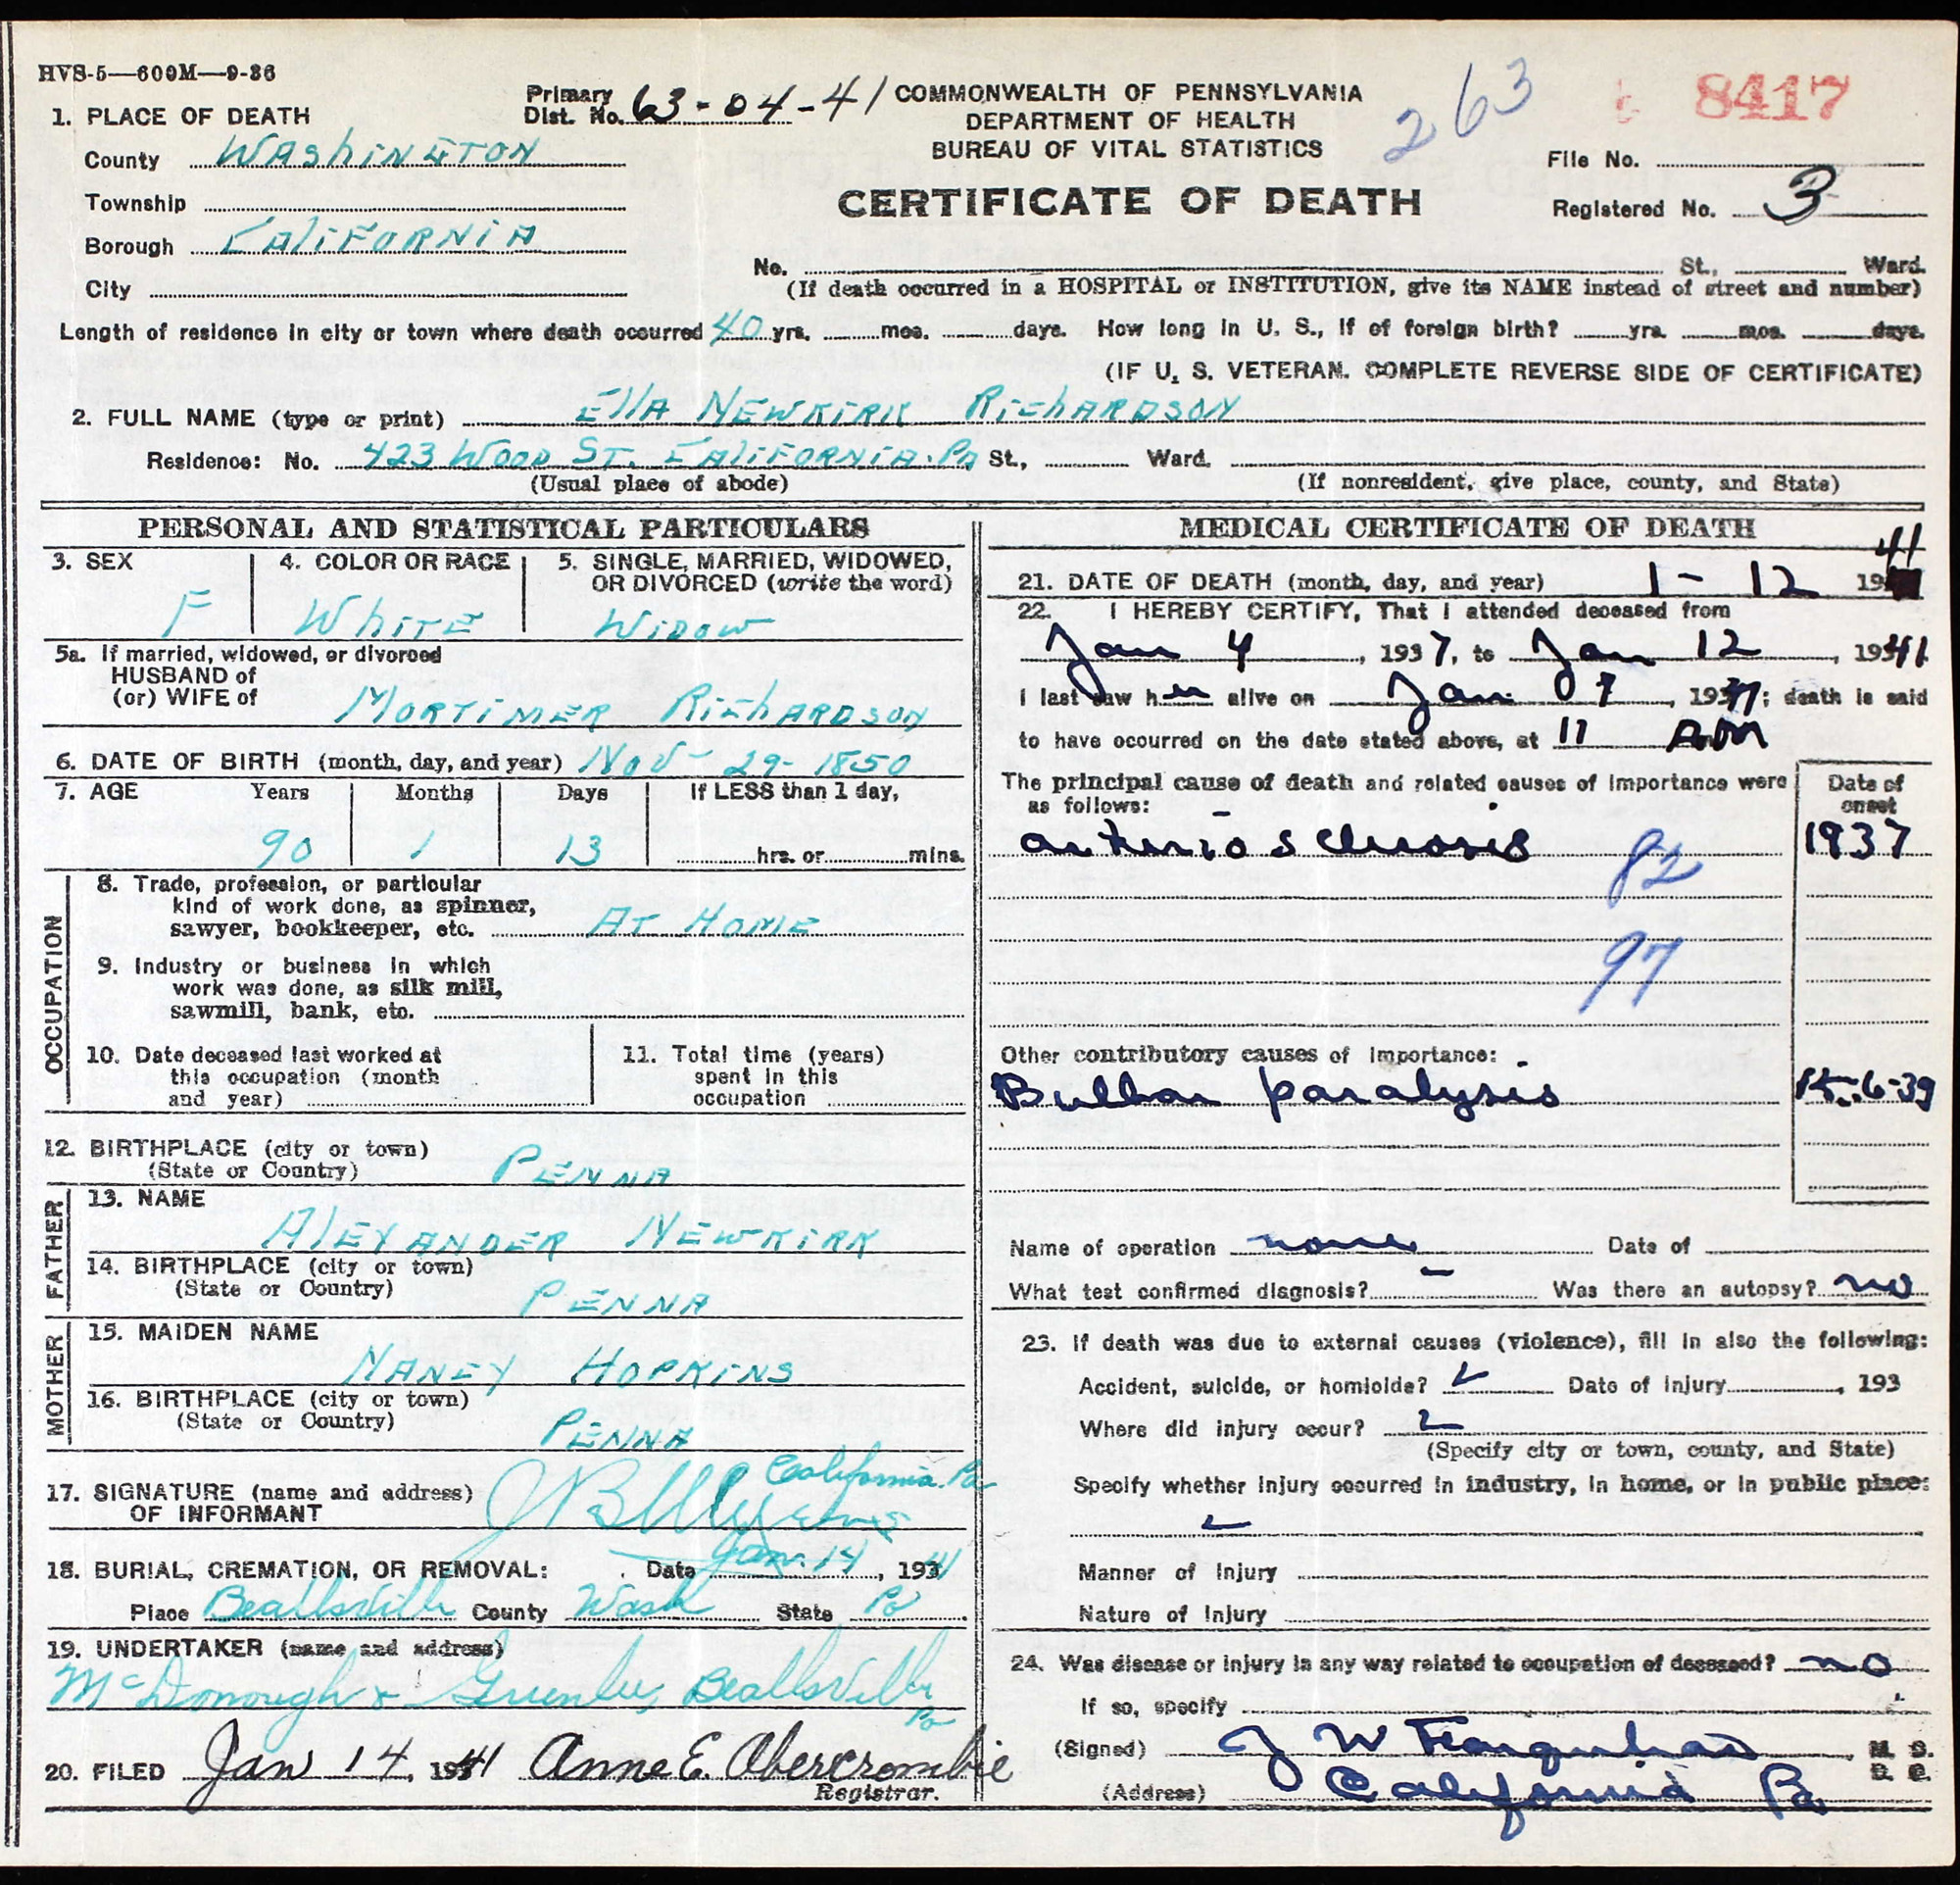 HVS-5—600M—9-36
Primary Dist. No. 63-04-41
COMMONWEALTH OF PENNSYLVANIA
DEPARTMENT OF HEALTH
BUREAU OF VITAL STATISTICS
CERTIFICATE OF DEATH
263
8417
File No.
Registered No. 3
1. PLACE OF DEATH
County WAShINGTON
Township
Borough CAliFORNiA
City
No. St., Ward.
(If death occurred in a HOSPITAL or INSTITUTION, give its NAME instead of street and number)
Length of residence in city or town where death occurred 40 yrs. mos. days. How long in U. S., if of foreign birth? yrs. mos. days.
(IF U. S. VETERAN. COMPLETE REVERSE SIDE OF CERTIFICATE)
2. FULL NAME (type or print) EllA NEWKIRK RichARDSON
Residence: No. 423 WOOD ST. CAliFORNiA. PA St., Ward.
(Usual place of abode) (If nonresident, give place, county, and State)
PERSONAL AND STATISTICAL PARTICULARS
3. SEX 4. COLOR OR RACE 5. SINGLE, MARRIED, WIDOWED,
OR DIVORCED (write the word)
F WhiTE WiDOW
5a. If married, widowed, or divorced
HUSBAND of
(or) WIFE of MORTIMER RichARDSON
6. DATE OF BIRTH (month, day, and year) Nov - 29 - 1850
7. AGE Years Months Days If LESS than 1 day,
90 1 13 hrs. or mins.
OCCUPATION
8. Trade, profession, or particular
kind of work done, as spinner,
sawyer, bookkeeper, etc. AT HOME
9. Industry or business in which
work was done, as silk mill,
sawmill, bank, etc.
10. Date deceased last worked at
this occupation (month
and year)
11. Total time (years)
spent in this
occupation
12. BIRTHPLACE (city or town)
(State or Country) PENNA
FATHER
13. NAME
AlEXANDER NEWKIRK
14. BIRTHPLACE (city or town)
(State or Country) PENNA
MOTHER
15. MAIDEN NAME
NANCY HOPKINS
16. BIRTHPLACE (city or town)
(State or Country) PENNA
17. SIGNATURE (name and address)
OF INFORMANT
California. Pa
18. BURIAL, CREMATION, OR REMOVAL: Date Jan. 14, 1941
Place Beallsville County Wash State Pa
19. UNDERTAKER (name and address)
McDonough & Greenlee, Beallsville
Pa
20. FILED Jan 14, 1941 Anne E. Abercrombie
Registrar.
MEDICAL CERTIFICATE OF DEATH
21. DATE OF DEATH (month, day, and year) 1 - 12 1941
22. I HEREBY CERTIFY, That I attended deceased from
Jan 4, 1937, to Jan 12, 1941
I last saw her alive on Jan 7, 1941; death is said
to have occurred on the date stated above, at 11 AM
The principal cause of death and related causes of importance were
as follows:
Date of
onset
arteriosclerosis 1937
82
97
Other contributory causes of importance:
Bulbar paralysis
Name of operation none Date of
What test confirmed diagnosis? – Was there an autopsy? no
23. If death was due to external causes (violence), fill in also the following:
Accident, suicide, or homicide? Date of injury, 193
Where did injury occur?
(Specify city or town, county, and State)
Specify whether injury occurred in industry, in home, or in public place:
Manner of injury
Nature of injury
24. Was disease or injury in any way related to occupation of deceased? no
If so, specify
(Signed) J W Farquhar, M. D.
D. O.
(Address) California Pa